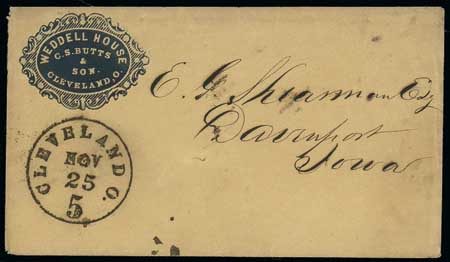 WEDDELL HOUSE
C.S. BUTTS
&
SON.
CLEVELAND, O.
CLEVELAND O.
NOV
25
5
E. G. Shearman Esq
Davenport
Iowa